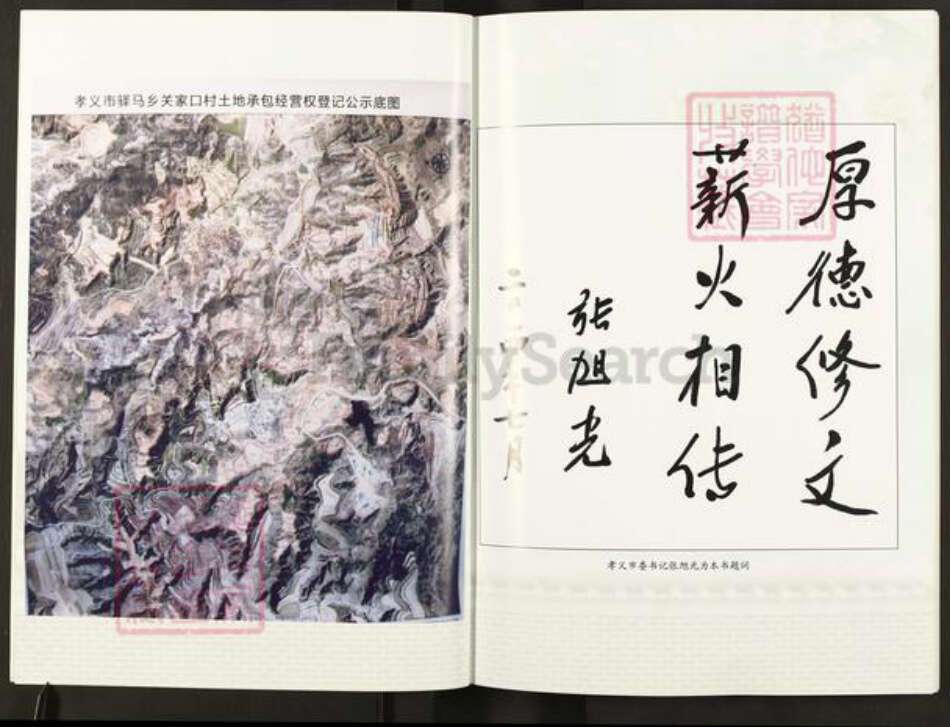 孝义市驿马乡关家口村土地承包经营权登记公示底图
厚德修文
薪火相传
张旭光
孝义市委书记张旭光为本书题词
FamilySearch